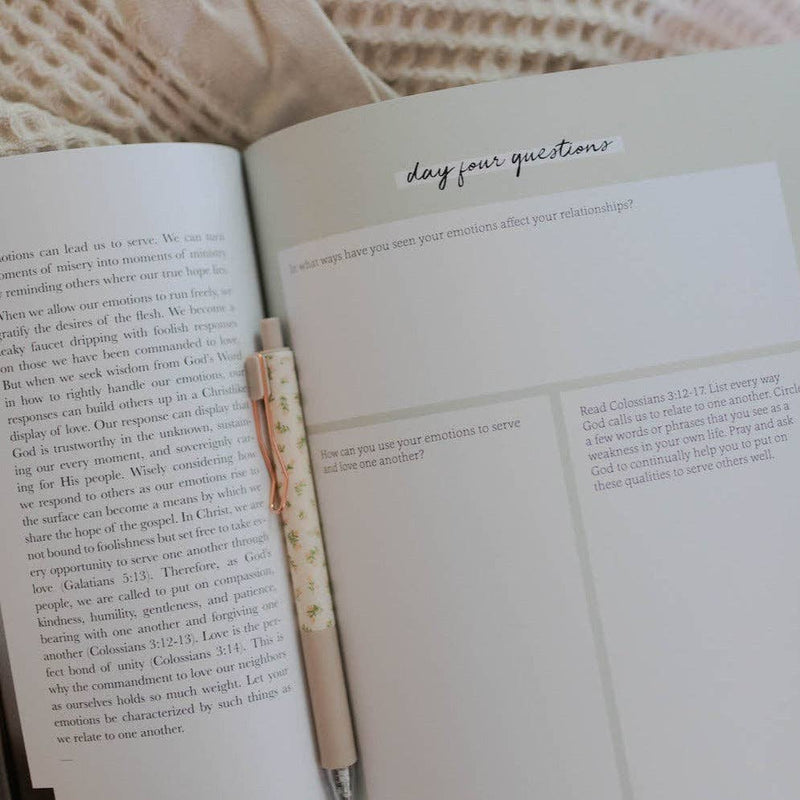 otions can lead us to serve. We can turn
oments of misery into moments of ministry
reminding others where our true hope lies.
When we allow our emotions to run freely, we
gratify the desires of the flesh. We become a
leaky faucet dripping with foolish responses
on those we have been commanded to love.
But when we seek wisdom from God's Word
in how to rightly handle our emotions, our
responses can build others up in a Christlike
display of love. Our response can display that
God is trustworthy in the unknown, sustain-
ing our every moment, and sovereignly car-
ing for His people. Wisely considering how
we respond to others as our emotions rise to
the surface can become a means by which we
share the hope of the gospel. In Christ, we are
not bound to foolishness but set free to take ev-
ery opportunity to serve one another through
love (Galatians 5:13). Therefore, as God's
people, we are called to put on compassion,
kindness, humility, gentleness, and patience,
bearing with one another and forgiving one
another (Colossians 3:12-13). Love is the per-
fect bond of unity (Colossians 3:14). This is
why the commandment to love our neighbors
as ourselves holds so much weight. Let your
emotions be characterized by such things as
we relate to one another.
day four questions
In what ways have you seen your emotions affect your relationships?
How can you use your emotions to serve
and love one another?
Read Colossians 3:12-17. List every way
God calls us to relate to one another. Circle
a few words or phrases that you see as a
weakness in your own life. Pray and ask
God to continually help you to put on
these qualities to serve others well.